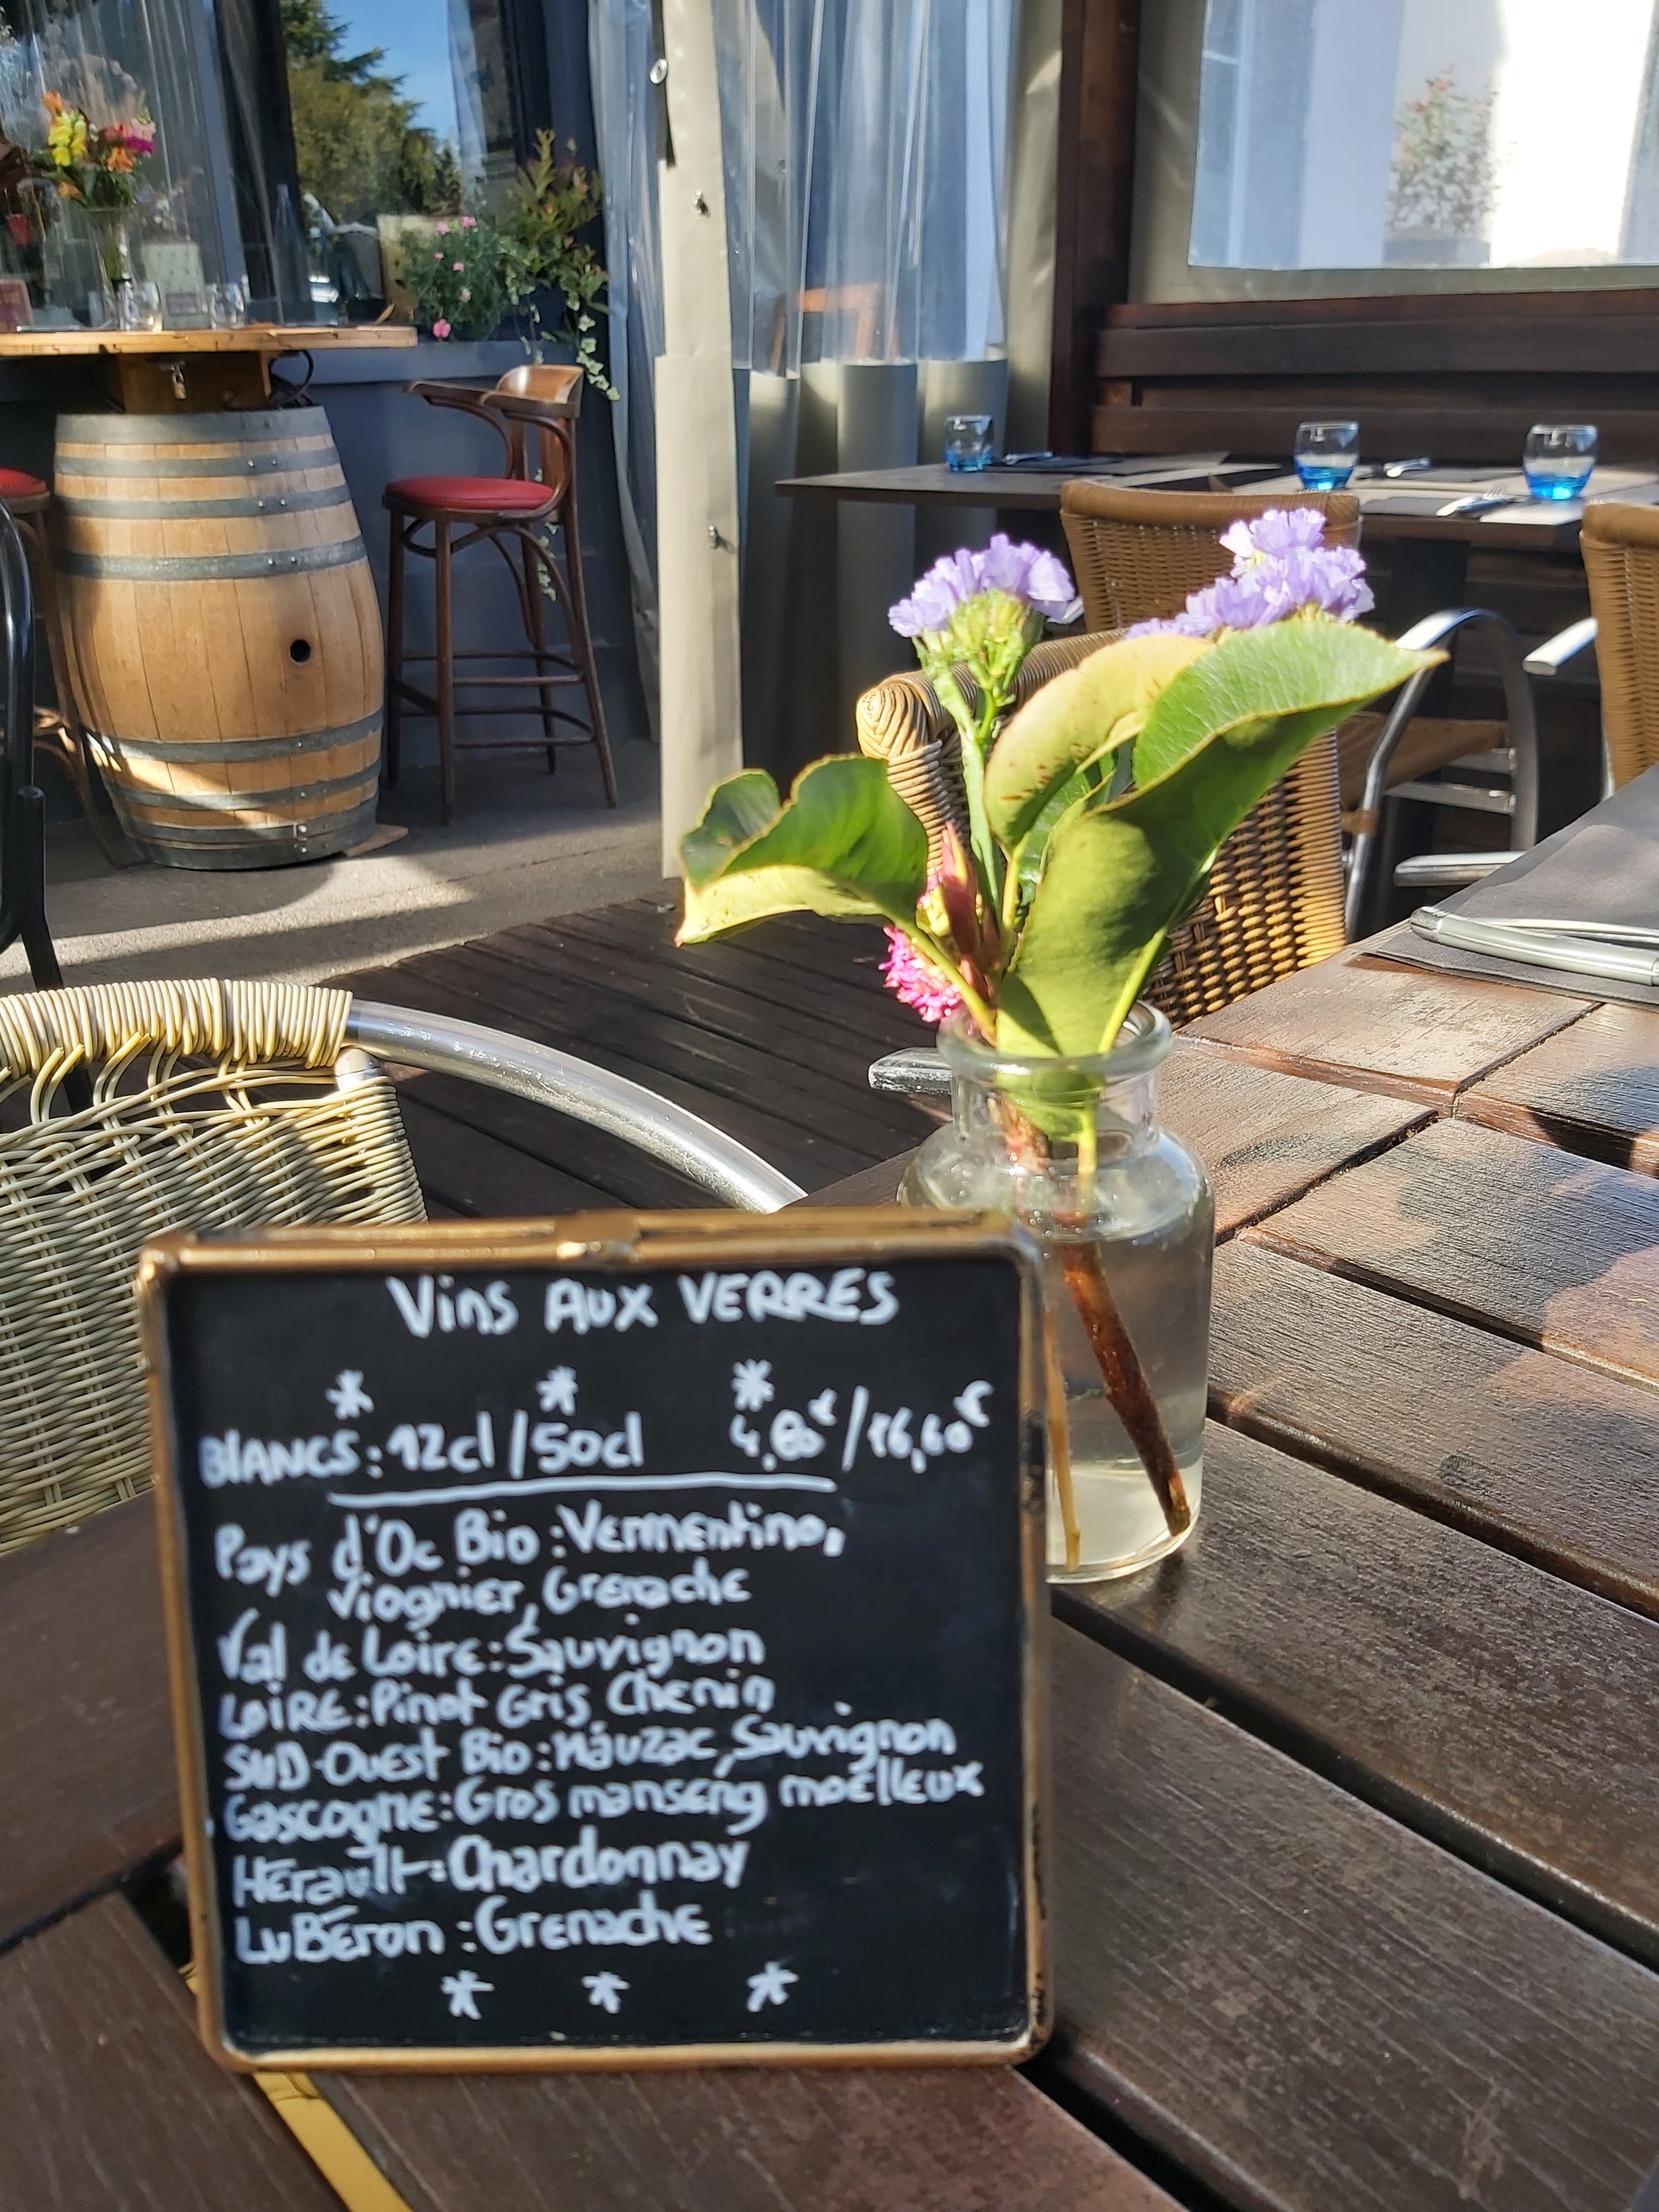 Vins AUX VERRES
* * *
BlANCS : 12cl / 50cl 4,80€ / 16,60€
Pays d'Oc Bio : Vermentino,
Viognier, Grenache
Val de Loire : Sauvignon
LOIRE : Pinot Gris Chenin
SUD-OUEST Bio : Mauzac, Sauvignon
Gascogne : Gros manseng moëlleux
Hérault : Chardonnay
LuBéron : Grenache
* * *